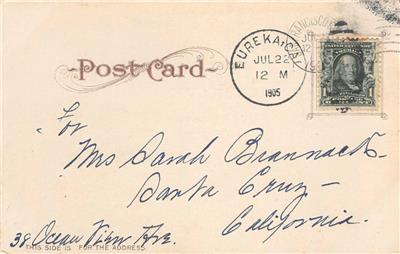 Post Card
EUREKA, CAL.
JUL 22
12 M
1905
FRANCISCO
1
For
Mrs Sarah Brannack
Santa Cruz
California.
38 Ocean View Ave.
THIS SIDE IS FOR THE ADDRESS